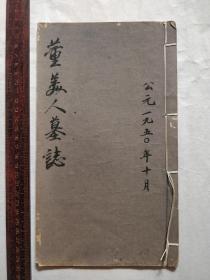 董美人墓誌
公元一九五〇年十月